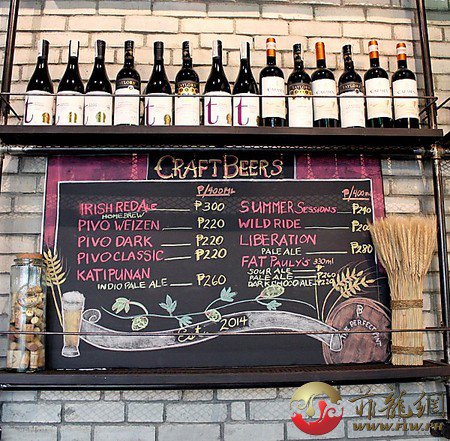 CRAFT BEERS
₱/400ML
IRISH RED ALE ₱300
HOMEBREW
PIVO WEIZEN ₱220
PIVO DARK ₱220
PIVO CLASSIC ₱220
KATIPUNAN
INDIO PALE ALE ₱260
₱/400ML
SUMMER SESSIONS ₱240
WILD RIDE ₱200
LIBERATION
PALE ALE ₱280
FAT PAULY'S 330ml
SOUR ALE
PALE ALE ₱260
DARK CHOCO ALE ₱220
Est. 2014
THE PERFECT PINT
菲龍網
WWW.FLW.PH